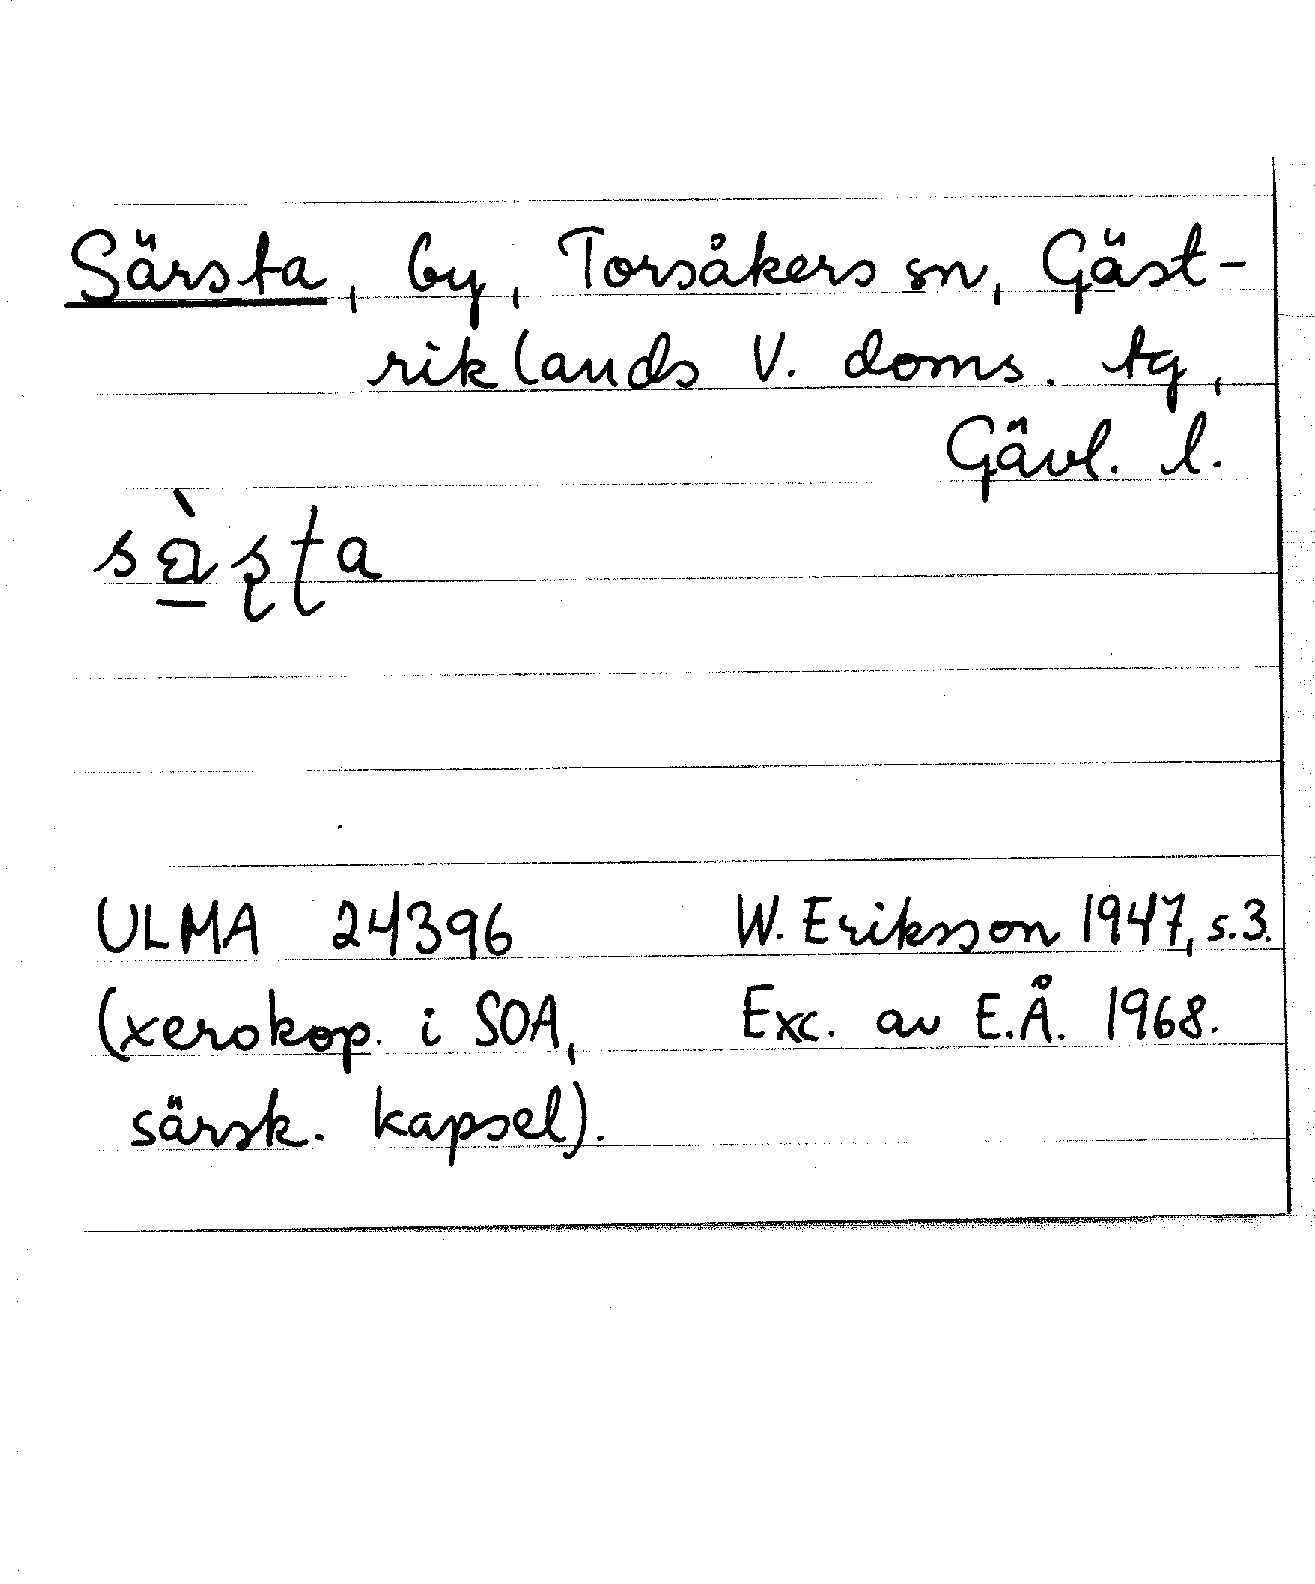 Särsta, by, Torsåkers sn, Gäst-
riklands V. doms. tg,
Gävl. l.
sæ̱̀ʂʈa
ULMA 24396 W. Eriksson 1947, s.3.
(xerokop. i SOA, Exc. av E.Å. 1968.
särsk. kapsel).